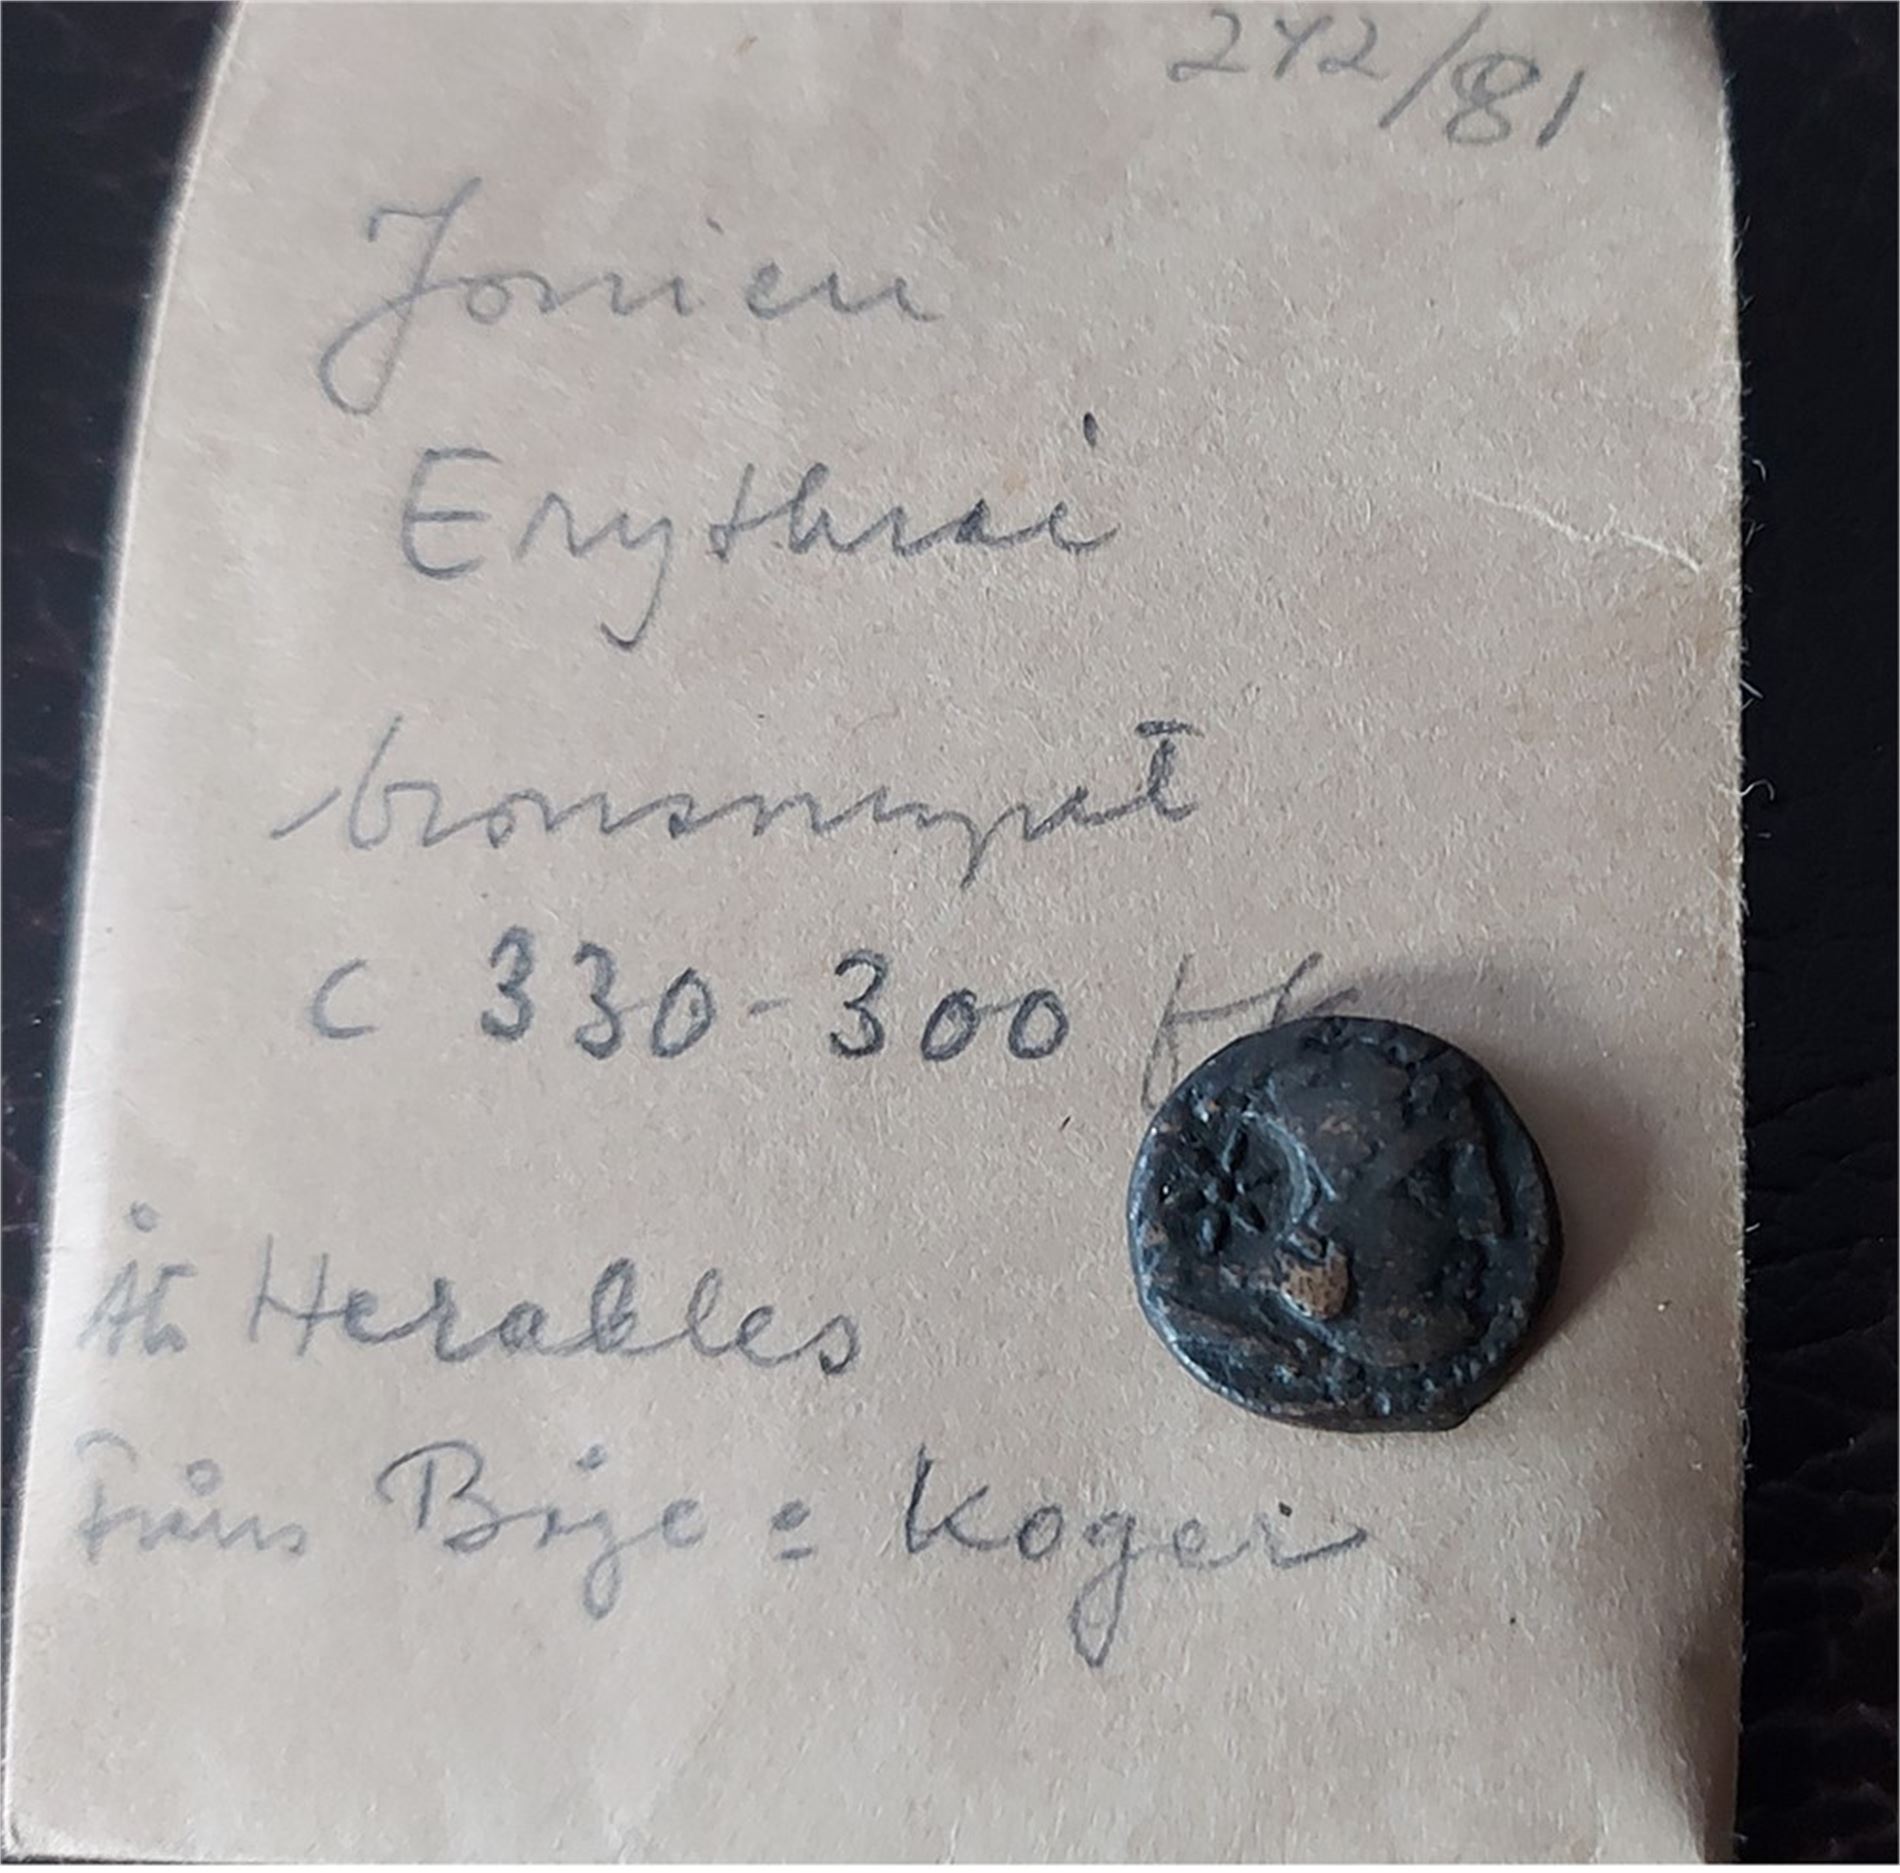 242/81
Jonien
Erythrai
bronsmynt
c 330-300 fK
Åts Herakles
Från Båge o Koger